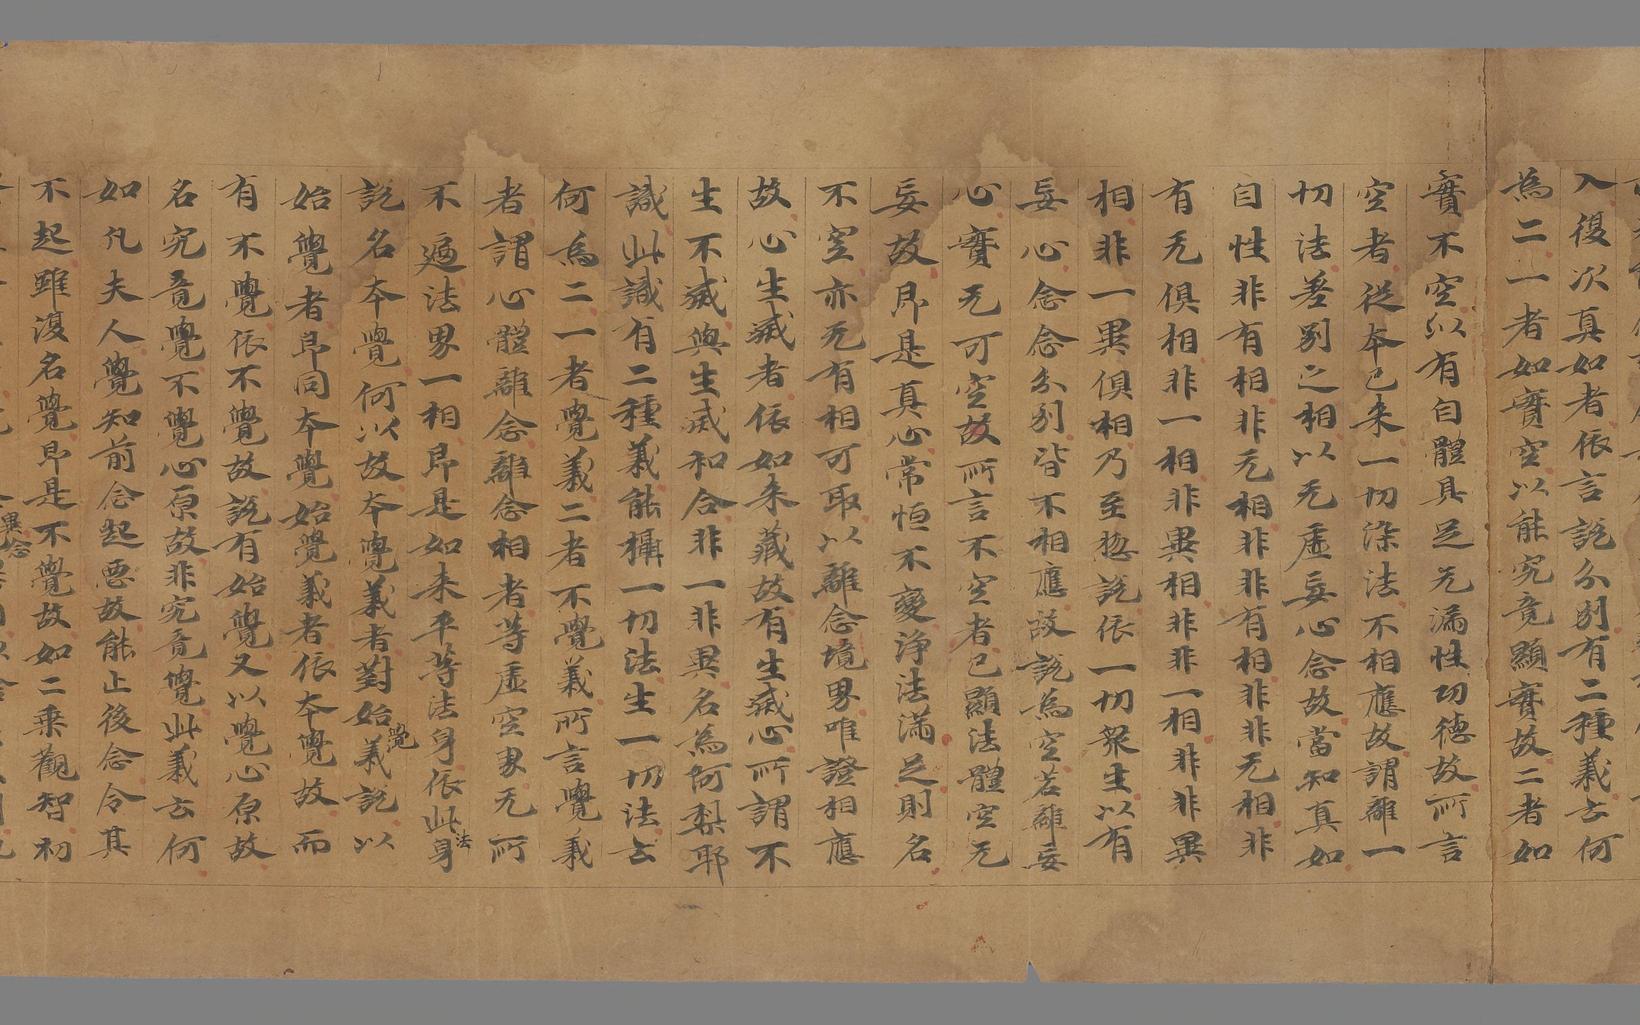 入復次真如者依言說分別有二種義云何
為二一者如實空以能究竟顯實故二者如
實不空以有自體具足无漏性功德故所言
空者從本已来一切染法不相應故謂離一
切法差別之相以无虛妄心念故當知真如
自性非有相非无相非非有相非非无相非
有无俱相非一相非異相非非一相非非異
相非一異俱相乃至惣說依一切衆生以有
妄心念念分別皆不相應故說為空若離妄
心實无可空故所言不空者已顯法體空无
妄故即是真心常恒不變淨法滿足則名
不空亦无有相可取以離念境界唯證相應
故心生滅者依如来藏故有生滅心所謂不
生不滅與生滅和合非一非異名為阿梨耶
識此識有二種義能攝一切法生一切法云
何為二一者覺義二者不覺義所言覺義
者謂心體離念離念相者等虛空界无所
不遍法界一相即是如来平等法身依此法身
說名本覺何以故本覺義者對始覺義說以
始覺者即同本覺始覺義者依本覺故而
有不覺依不覺故說有始覺又以覺心原故
名究竟覺不覺心原故非究竟覺此義云何
如凡夫人覺知前念起惡故能止後念令其
不起雖復名覺即是不覺故如二乘觀智初
異念